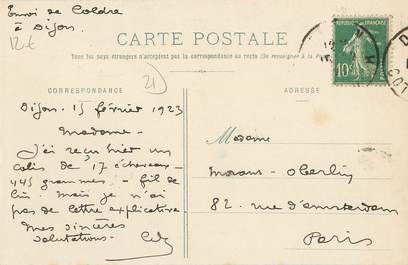 Envoi de Coldre
à Dijon
12 €
CARTE POSTALE
Tous les pays étrangers n'acceptent pas la correspondance au recto (Se renseigner à la Poste)
RÉPUBLIQUE FRANÇAISE
10c
21
CORRESPONDANCE
ADRESSE
Dijon. 15 février 1923
Madame -
J'ai reçu hier un
colis de 17 écheveaux -
445 grammes - fil de
lin. Mais je n'ai
pas de lettre explicative
Mes sincères
salutations -
Madame
Oberlin
82. rue d'amsterdam
Paris